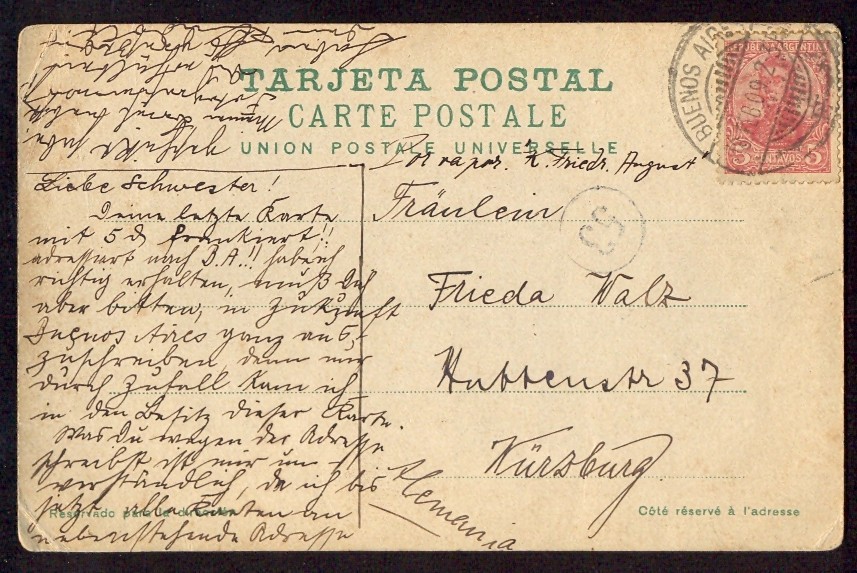 TARJETA POSTAL
CARTE POSTALE
UNION POSTALE UNIVERSELLE
BUENOS AIRES
REPUBLICA ARGENTINA
5 CENTAVOS 5
Por vapor. K. Friedr. August
Fräulein
Frieda Walz
Huttenstr 37
Würzburg
Alemania
53
Liebe Schwester!
Deine letzte Karte
mit 5 ₰ frankiert!!
adressiert nach B.A.!! habe ich
richtig erhalten, muß Dich
aber bitten, in Zukunft
Buenos Aires ganz aus-
zuschreiben, denn nur
durch Zufall kam ich
in den Besitz dieser Karte.
Was Du wegen der Adresse
schreibst ist mir un-
verständlich, da ich bis
jetzt alle Karten an
nebenstehende Adresse
Reservado para la
Côté réservé à l'adresse